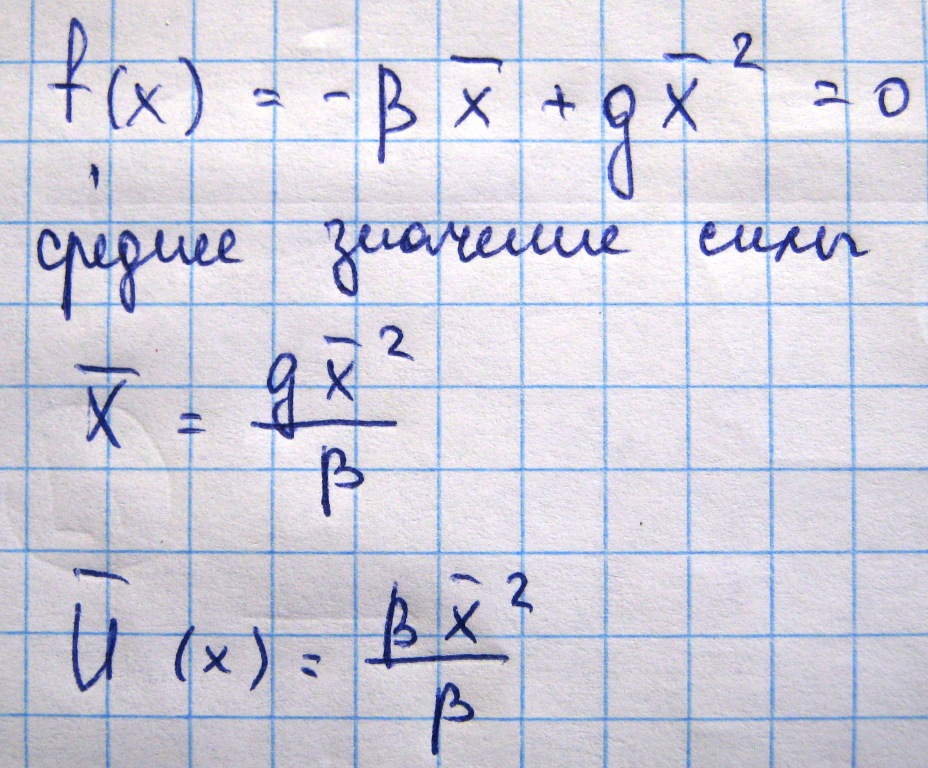 f(x) = -β x̄ + g x̄² = 0
среднее значение силы
x̄ = g x̄² / β
Ū (x) = β x̄² / β